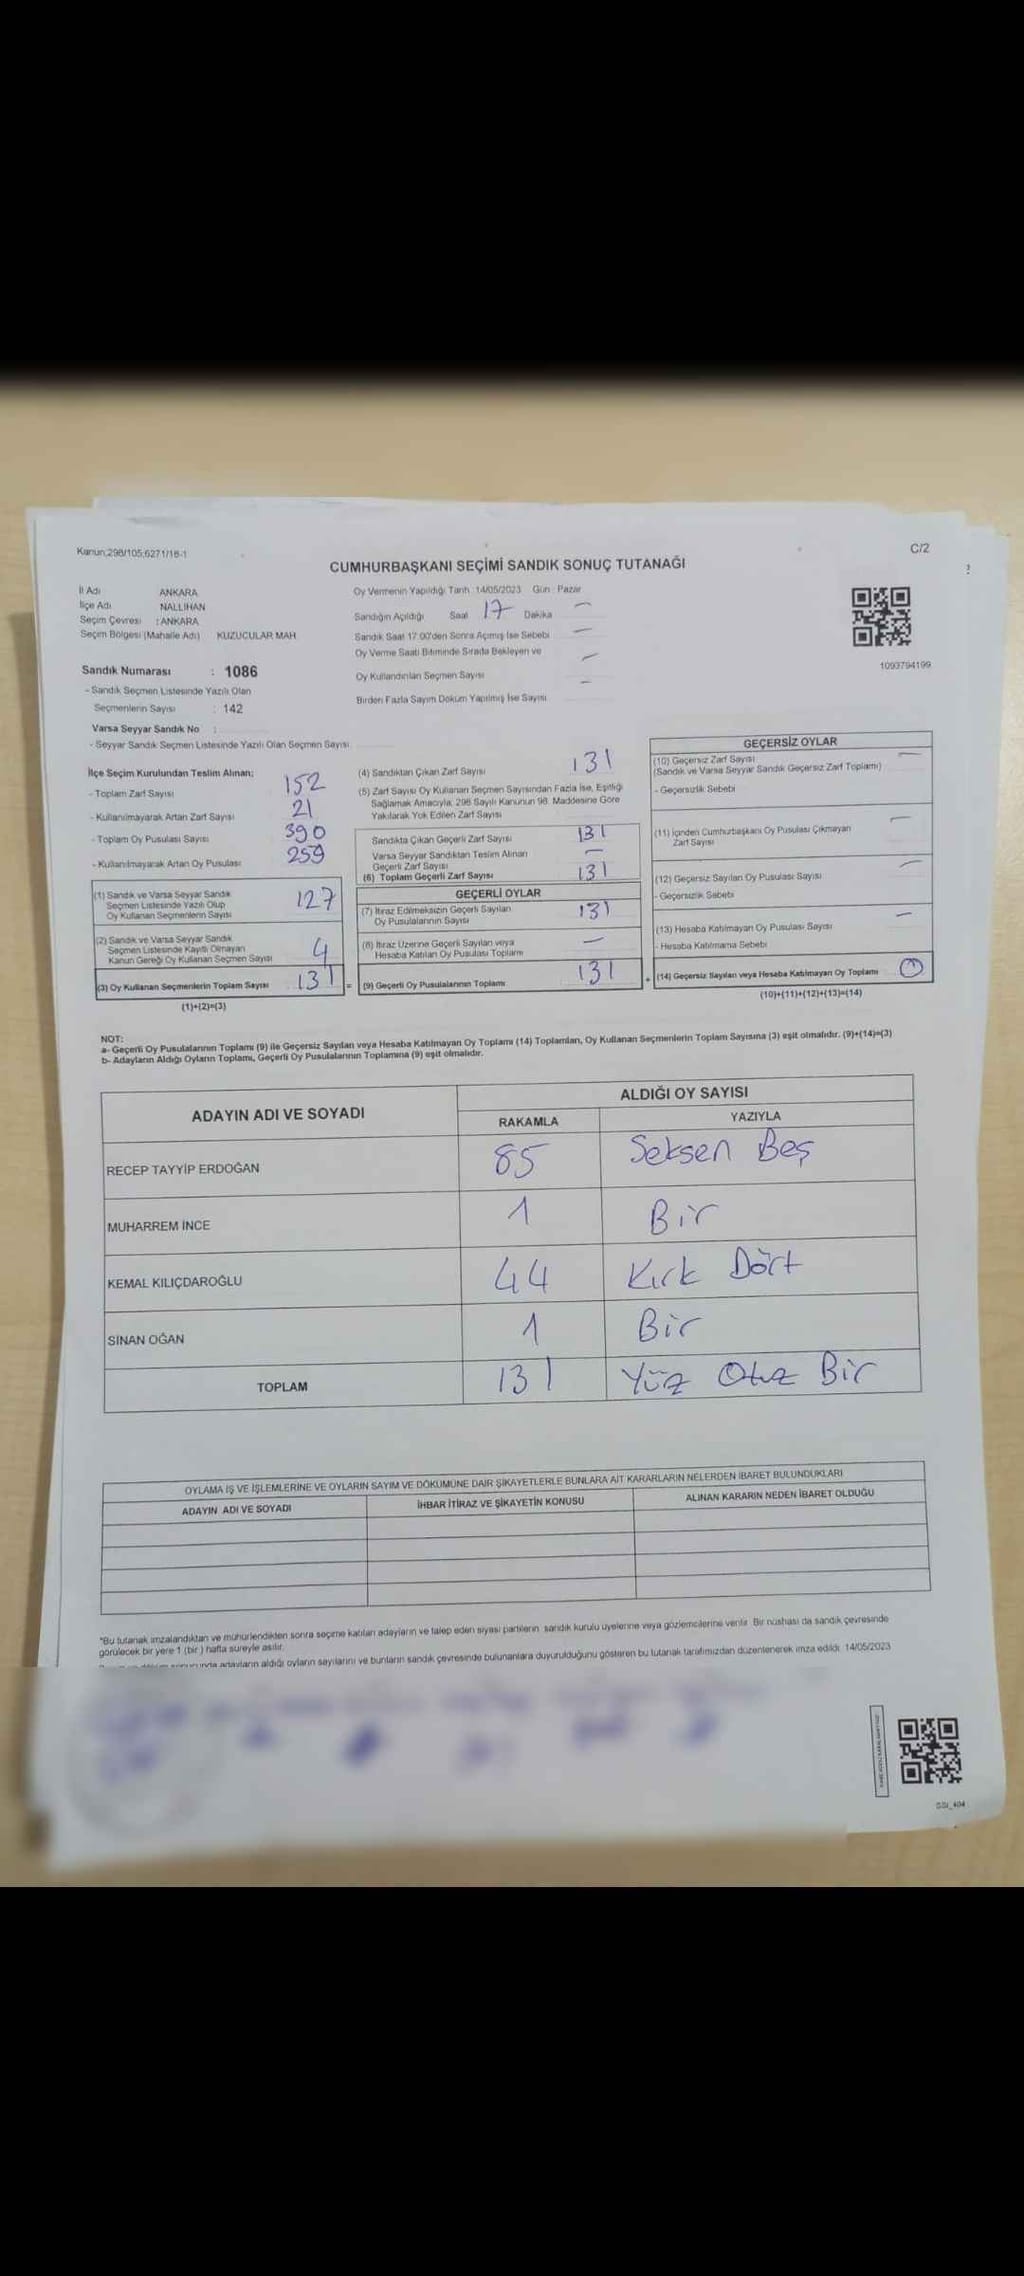 Kanun;298/105,6271/18-1
C/2
CUMHURBAŞKANI SEÇİMİ SANDIK SONUÇ TUTANAĞI
İl Adı ANKARA
İlçe Adı NALLIHAN
Seçim Çevresi : ANKARA
Seçim Bölgesi (Mahalle Adı) KUZUCULAR MAH
Sandık Numarası : 1086
- Sandık Seçmen Listesinde Yazılı Olan
Seçmenlerin Sayısı : 142
Varsa Seyyar Sandık No :
- Seyyar Sandık Seçmen Listesinde Yazılı Olan Seçmen Sayısı
Oy Vermenin Yapıldığı Tarih : 14/05/2023 Gün : Pazar
Sandığın Açıldığı Saat 17 Dakika —
Sandık Saat 17.00'den Sonra Açımış İse Sebebi —
Oy Verme Saati Bitiminde Sırada Bekleyen ve
Oy Kullandırılan Seçmen Sayısı —
Birden Fazla Sayım Döküm Yapılmış İse Sayısı —
1093794199
İlçe Seçim Kurulundan Teslim Alınan;
- Toplam Zarf Sayısı 152
- Kullanılmayarak Artan Zarf Sayısı 21
- Toplam Oy Pusulası Sayısı 390
- Kullanılmayarak Artan Oy Pusulası 259
(1) Sandık ve Varsa Seyyar Sandık
Seçmen Listesinde Yazılı Olup
Oy Kullanan Seçmenlerin Sayısı 127
(2) Sandık ve Varsa Seyyar Sandık
Seçmen Listesinde Kayıtlı Olmayan
Kanun Gereği Oy Kullanan Seçmen Sayısı 4
(3) Oy Kullanan Seçmenlerin Toplam Sayısı 131 =
(1)+(2)=(3)
(4) Sandıktan Çıkan Zarf Sayısı 131
(5) Zarf Sayısı Oy Kullanan Seçmen Sayısından Fazla İse, Eşitliği
Sağlamak Amacıyla, 298 Sayılı Kanunun 98. Maddesine Göre
Yakılarak Yok Edilen Zarf Sayısı
Sandıkta Çıkan Geçerli Zarf Sayısı 131
Varsa Seyyar Sandıktan Teslim Alınan
Geçerli Zarf Sayısı —
(6) Toplam Geçerli Zarf Sayısı 131
GEÇERLİ OYLAR
(7) İtiraz Edilmeksizin Geçerli Sayılan
Oy Pusulalarının Sayısı 131
(8) İtiraz Üzerine Geçerli Sayılan veya
Hesaba Katılan Oy Pusulası Toplamı —
(9) Geçerli Oy Pusulalarının Toplamı 131 +
GEÇERSİZ OYLAR
(10) Geçersiz Zarf Sayısı —
(Sandık ve Varsa Seyyar Sandık Geçersiz Zarf Toplamı)
- Geçersizlik Sebebi
(11) İçinden Cumhurbaşkanı Oy Pusulası Çıkmayan —
Zarf Sayısı
(12) Geçersiz Sayılan Oy Pusulası Sayısı —
- Geçersizlik Sebebi
(13) Hesaba Katılmayan Oy Pusulası Sayısı —
- Hesaba Katılmama Sebebi
(14) Geçersiz Sayılan veya Hesaba Katılmayan Oy Toplamı 0
(10)+(11)+(12)+(13)=(14)
NOT:
a- Geçerli Oy Pusulalarının Toplamı (9) ile Geçersiz Sayılan veya Hesaba Katılmayan Oy Toplamı (14) Toplamları, Oy Kullanan Seçmenlerin Toplam Sayısına (3) eşit olmalıdır. (9)+(14)=(3)
b- Adayların Aldığı Oyların Toplamı, Geçerli Oy Pusulalarının Toplamına (9) eşit olmalıdır.
ADAYIN ADI VE SOYADI
ALDIĞI OY SAYISI
RAKAMLA YAZIYLA
RECEP TAYYİP ERDOĞAN 85 Seksen Beş
MUHARREM İNCE 1 Bir
KEMAL KILIÇDAROĞLU 44 Kırk Dört
SİNAN OĞAN 1 Bir
TOPLAM 131 Yüz Otuz Bir
OYLAMA İŞ VE İŞLEMLERİNE VE OYLARIN SAYIM VE DÖKÜMÜNE DAİR ŞİKAYETLERLE BUNLARA AİT KARARLARIN NELERDEN İBARET BULUNDUKLARI
ADAYIN ADI VE SOYADI İHBAR İTİRAZ VE ŞİKAYETİN KONUSU ALINAN KARARIN NEDEN İBARET OLDUĞU
*Bu tutanak imzalandıktan ve mühürlendikten sonra seçime katılan adayların ve talep eden siyasi partilerin sandık kurulu üyelerine veya gözlemcilerine verilir. Bir nüshası da sandık çevresinde
görülecek bir yere 1 (bir) hafta süreyle asılır.
adayların aldığı oyların sayılarını ve bunların sandık çevresinde bulunanlara duyurulduğunu gösteren bu tutanak tarafımızdan düzenlenerek imza edildi. 14/05/2023